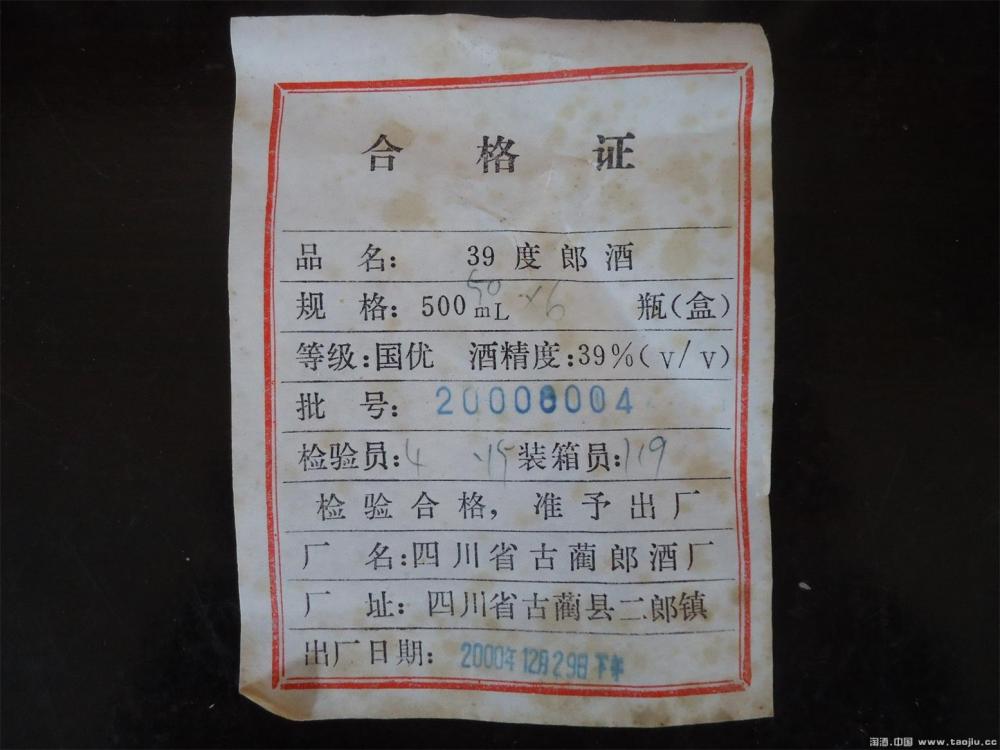 合格证
品名: 39度郎酒
50
规格: 500mL ×6 瓶(盒)
等级:国优 酒精度:39%(v/v)
批号: 20008004
检验员:4 15 装箱员:119
检验合格,准予出厂
厂名:四川省古蔺郎酒厂
厂址:四川省古蔺县二郎镇
出厂日期: 2000年12月29日下午
淘酒.中国 www.taojiu.cc